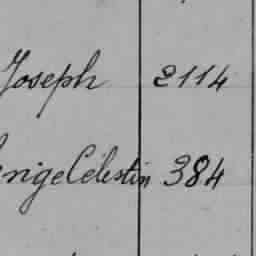 Joseph 2114
Celestin 384